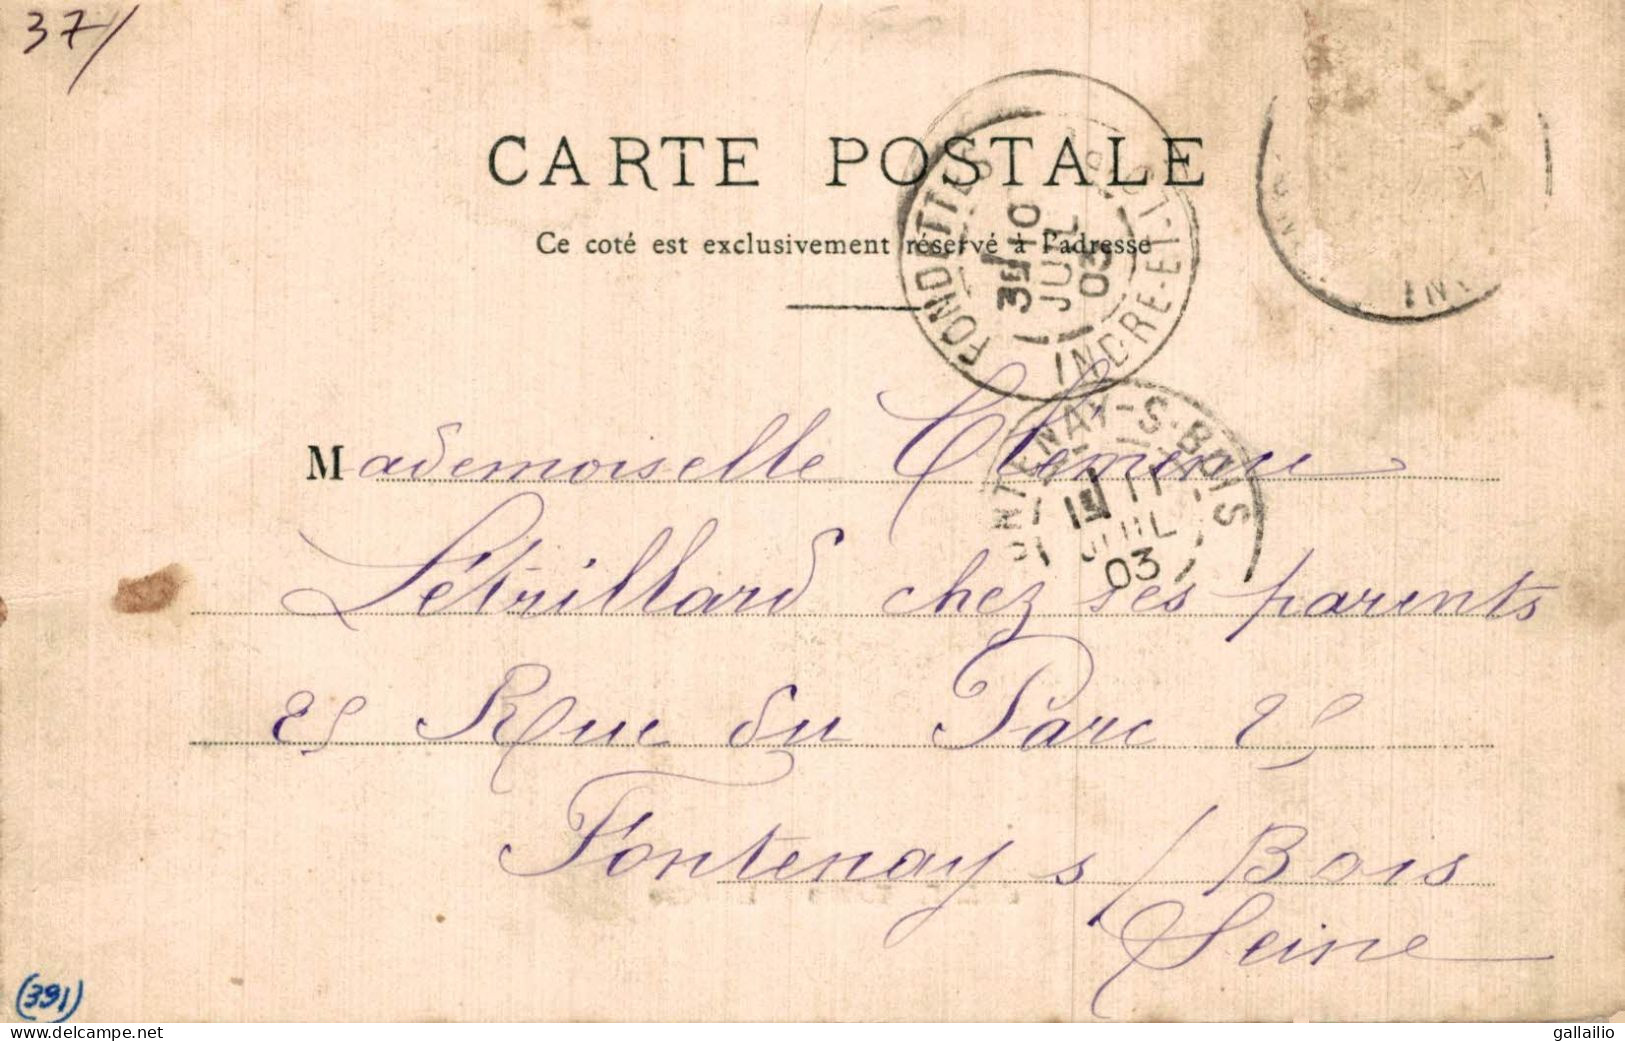 37/
CARTE POSTALE
Ce coté est exclusivement réservé à l'adresse
FONDETTES
INDRE-ET-LOIRE
3E 10
JUIL
03
IN
FONTENAY-S-BOIS
1E 11
JUIL
03
Mademoiselle
Létrillard chez ses parents
25 Rue du Parc 25
Fontenay s/ Bois
Seine
(391)
www.delcampe.net
gallailio